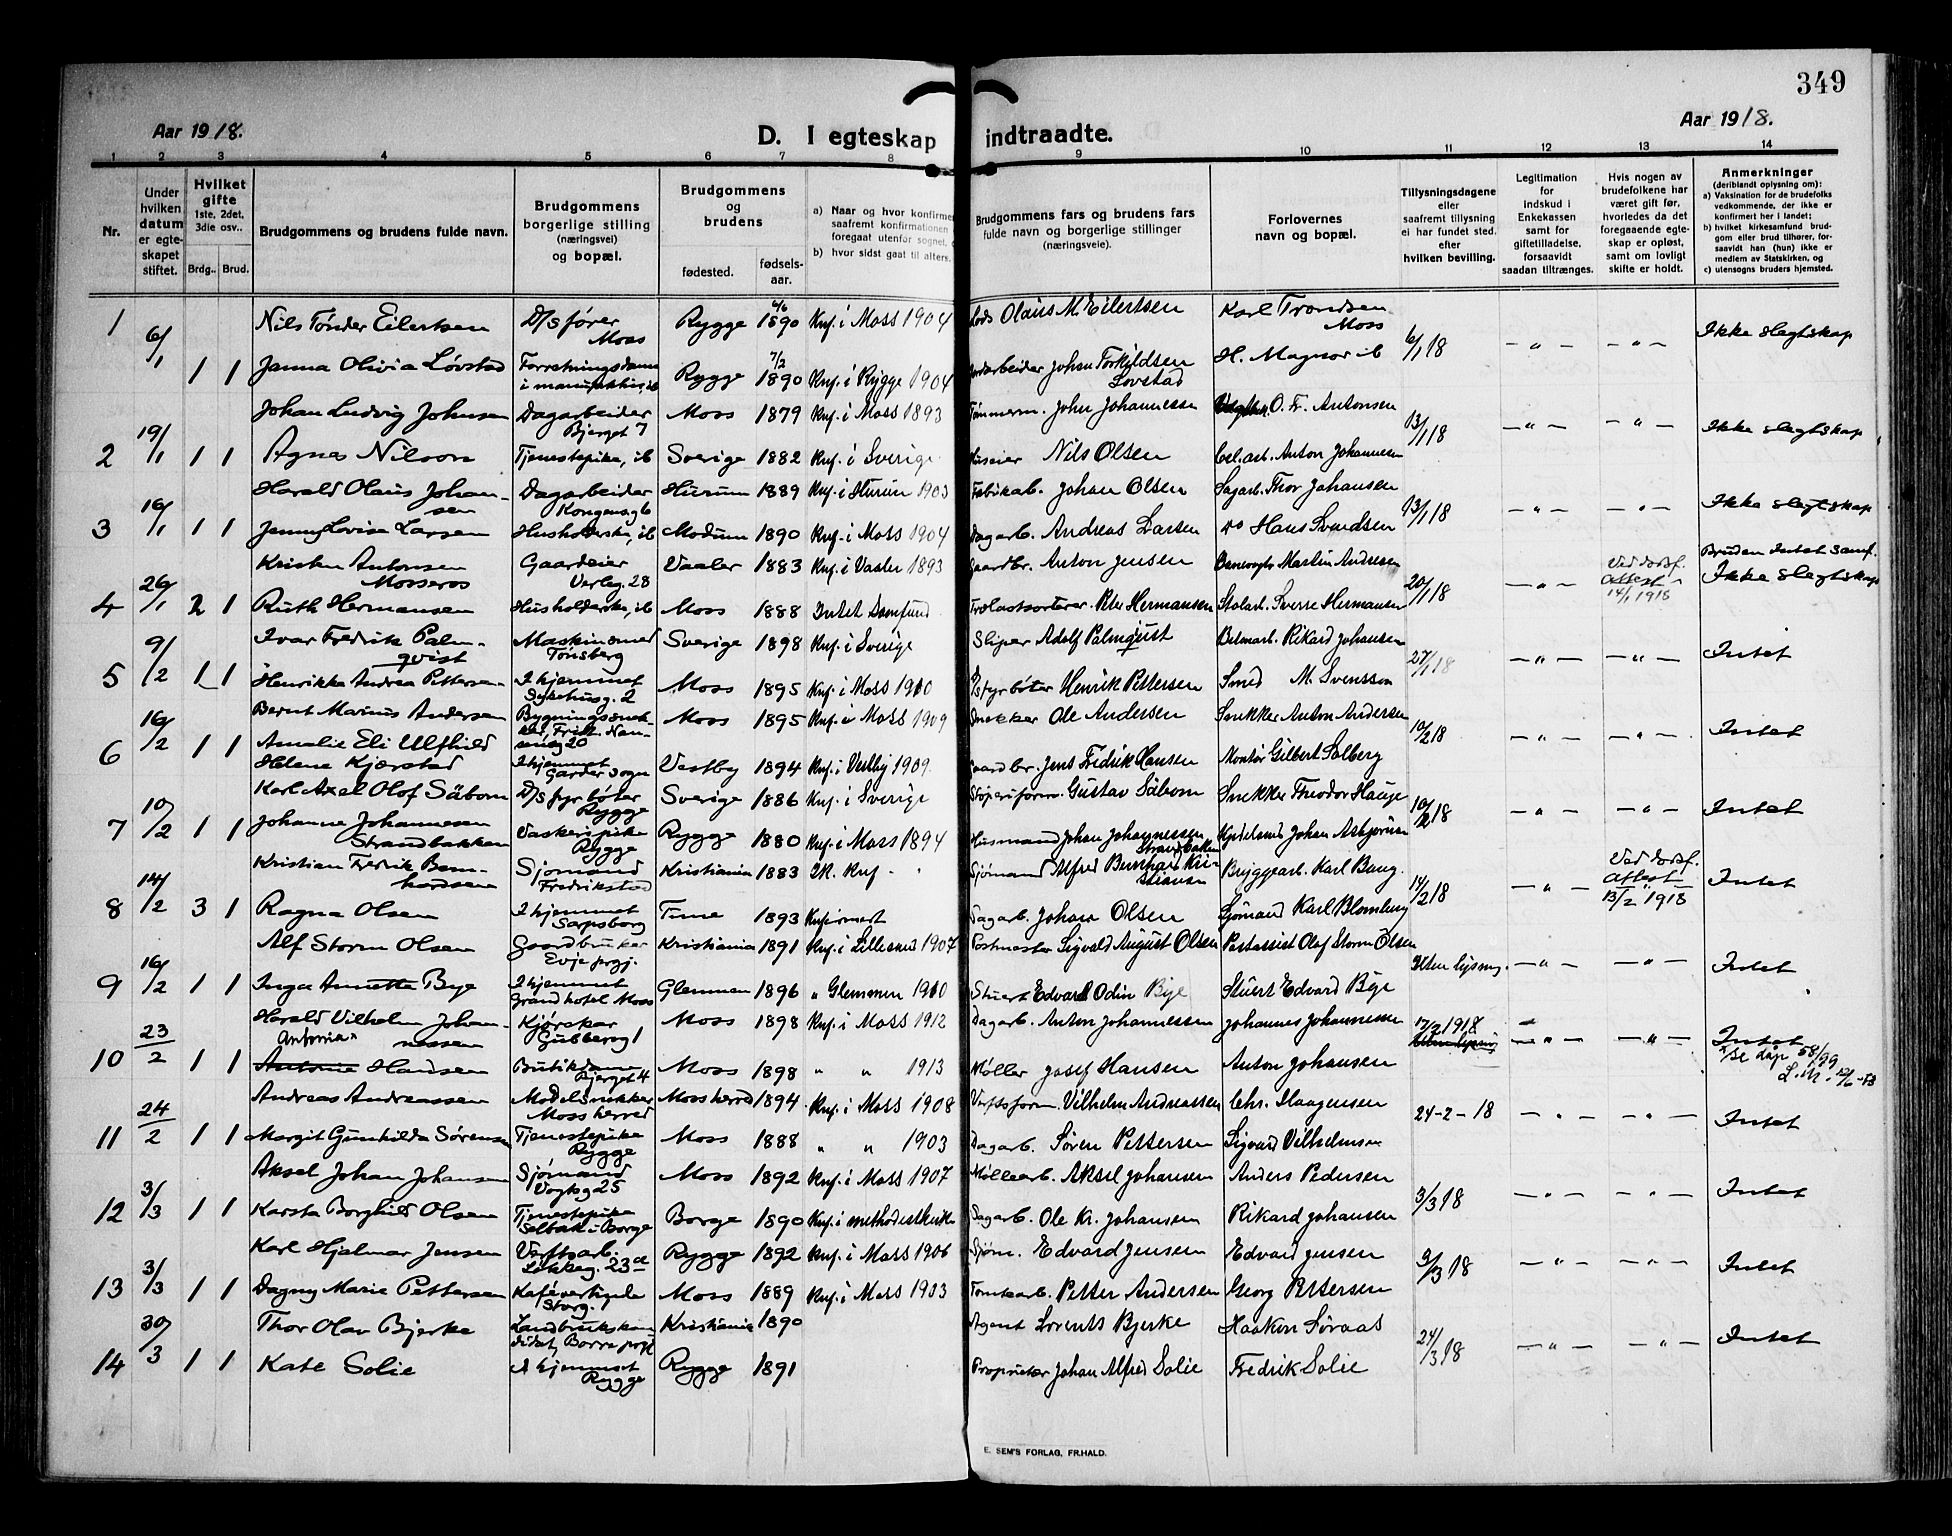 349
Aar 1918.
D. I egteskap indtraadte.
Aar 1918.
1 2 3 4 5 6 7 8 9 10 11 12 13 14
Nr.
Under hvilken datum er egteskapet stiftet.
Hvilket gifte 1ste, 2det, 3die osv..
Brdg.. Brud.
Brudgommens og brudens fulde navn.
Brudgommens borgerlige stilling (næringsvei) og bopæl.
Brudgommens og brudens
fødested. fødselsaar.
a) Naar og hvor konfirme
saafremt konfirmationen
foregaat utenfor sognet,
b) hvor sidst gaat til alters.
Brudgommens fars og brudens fars fulde navn og borgerlige stillinger (næringsveie).
Forlovernes navn og bopæl.
Tillysningsdagene eller saafremt tillysning ei har fundet sted. efter hvilken bevilling.
Legitimation for indskud i Enkekassen samt for giftetilladelse, forsaavidt saadan tiltrænges.
Hvis nogen av brudefolkene har været gift før, hvorledes da det foregaaende egteskap er opløst, samt om lovligt skifte er holdt.
Anmerkninger (deriblandt oplysning om): a) Vaksination for de brudefolks vedkommende, der ikke er konfirmert her i landet; b) hvilket kirkesamfund brudgom eller brud tilhører, forsaavidt han (hun) ikke er medlem av Statskirken, og c) utensogns bruders hjemsted.
1 6/1 Nils Tønder Eilertsen D/s fører Moss Rygge 4/6 1890 Knf. i Moss 1904 Lods Olaus M. Eilertsen Karl Trondsen Moss 6/1 18 — " — — " — Ikke slegtskap
1 1 Janna Olivia Løvstad Forretningsdame i manufaktur, ib Rygge 7/2 1890 Knf. i Rygge 1904 Johan Torkildsen Lovstad H. Magnor ib
Johan Ludvig Johnsen Dagarbeider Bjerget 7 Moss 1879 Knf. i Moss 1893 Tømmerm. John Johannessen O. Fr. Antonsen 13/1 18 — " — — " — Ikke slegtskap
2 19/1 1 1 Agnes Nilsson Tjenestepike, ib Sverige 1882 Knf. i Sverige Nils Olsen Cel.arb. Anton Johannesen
Harald Olaus Johansen Dagarbeider Kongensg 6 Hurum 1889 Knf. i Hurum 1903 Fabrikarb. Johan Olsen Sagarb. Thor Johansen 13/1 18 — " — — " — Ikke slegtskap
3 16/1 1 1 Jenny Lovise Larsen Husholderske, ib Modum 1890 Knf. i Moss 1904 Dagarb. Andreas Larsen do Hans Svendsen
Kristen Antonsen Mosseros Gaardeier Verleg. 28 Vaaler 1883 Knf. i Vaaler 1893 Gaardbr. Anton Jensen Martin Andresen 20/1 18 — " — Ved dødsf. Attest 14/1 1918 Bruden Intet samf. Ikke slegtskap
4 26/1 2 1 Ruth Hermansen Husholderske, ib Moss 1888 Intet Samfund Peter Hermansen Stolarb. Sverre Hermansen
Ivar Fredrik Palmqvist Maskinsmed Tønsberg Sverige 1898 Knf. i Sverige Sliper Adolf Palmqvist Rikard Johansen 27/1 18 — " — — " — Intet
5 9/2 1 1 Henrikke Andrea Pettersen I hjemmet Sykehusg. 2 Moss 1895 Knf. i Moss 1910 Fyrbøter Henrik Pettersen Smed M. Svensson
Bernt Marius Andersen Moss 1895 Knf. i Moss 1909 Snekker Ole Andersen Snekker Anton Andersen 10/2 18 — " — — " — Intet
6 16/2 1 1 Amalie Eli Ulfhild Helene Kjærstad I hjemmet Garder sogn Vestby 1894 Knf. i Vestby 1909. Gaardbr. Jens Fredrik Hansen Montør Gilbert Solberg
Karl Axel Olof Säbom D/s fyrbøter Rygge Sverige 1886 Knf. i Sverige Støperiform. Gustav Säbom Snekker Theodor Hauge 10/2 18 — " — — " — Intet
7 10/2 1 1 Johanne Johannesen Strandbakken Vaskeripike Rygge Rygge 1880 Knf. i Moss 1894 Husmand Johan Johannessen Strandbakken Johan Asbjørnsen
Kristian Fredrik Bernhardsen Sjømand Fredrikstad Kristiania 1883 Ik. Knf. Sjømand Alfred Bernhard Kristiansen Bryggearb. Karl Bang. 14/2 18 — " — Ved dødsf. Attest 13/2 1918 Intet
8 14/2 3 1 Ragna Olsen I hjemmet Sarpsborg Tune 1893 Knfirmert Dagarb. Johan Olsen Sjømand Karl Blomberg
Alf Storm Olsen Gaardbruker Evje prgj. Kristiania 1891 Knf. i Lillesand 1907 Postmester Sigvald August Olsen Postassist Olaf Storm Olsen Uten lysning. — " — — " — Intet
9 16/2 1 1 Inga Annette Bye I hjemmet Grand hotel Moss Glemmen 1896 " Glemmen 1910 Stuert Edvard Odin Bye Stuert Edvard Bye
Harald Vilhelm Johannessen Kjørekar Gubberog 1 Moss 1898 Knf. i Moss 1912 Dagarb. Anton Johannessen Johannes Johannessen 17/2 1918 — " — — " — Intet
10 23/2 1 1 Antonia × Antonie Hansen Butikdame Bjerget 4 Moss 1898 " " 1913 Møller Josef Hansen Anton Johansen × Se dåp 58/99
Andreas Andreassen Modelsnekker Moss herred Moss herred 1894 Knf. i Moss 1908 Verftsform. Vilhelm Andreassen Chr. Haagensen 24-2-18 — " — — " — Intet
11 24/2 1 1 Margit Gunhilda Sørensen Tjenestepike Rygge Moss 1888 " " 1903 Dagarb. Søren Pettersen Sigvard Vilhelmsen
Aksel Johan Johansen Sjømand Vogtsg 25 Moss 1892 Knf. i Moss 1907 Møllearb. Aksel Johansen Anders Pedersen 3/3 18 — " — — " — Intet
12 3/3 1 1 Karsta Borghild Olsen Tjenestepike Selbak i Borge Borge 1890 Knf. i methodistkirke Dagarb. Ole Kr. Johansen Rikard Johansen
Karl Hjalmar Jensen Verftsarb. Løkkeg. 23a Rygge 1892 Knf. i Moss 1906 Sjøm. Edvard Jensen Edvard Jensen 3/3 18 — " — — " — Intet
13 3/3 1 1 Dagny Marie Pettersen Storg. Moss 1889 Knf. i Moss 1903 Tomtearb. Petter Andersen Georg Pettersen
Thor Olav Bjerke Landbrukskandidat, Borre prgj. Kristiania 1890 Agent Lorents Bjerke Haakon Søraas 24/3 18 — " — — " — Intet
14 30/3 1 1 Kate Solie I hjemmet Rygge Rygge 1891 Proprietær Johan Alfred Solie Fredrik Solie
E. SEM'S FORLAG, FR.HALD.